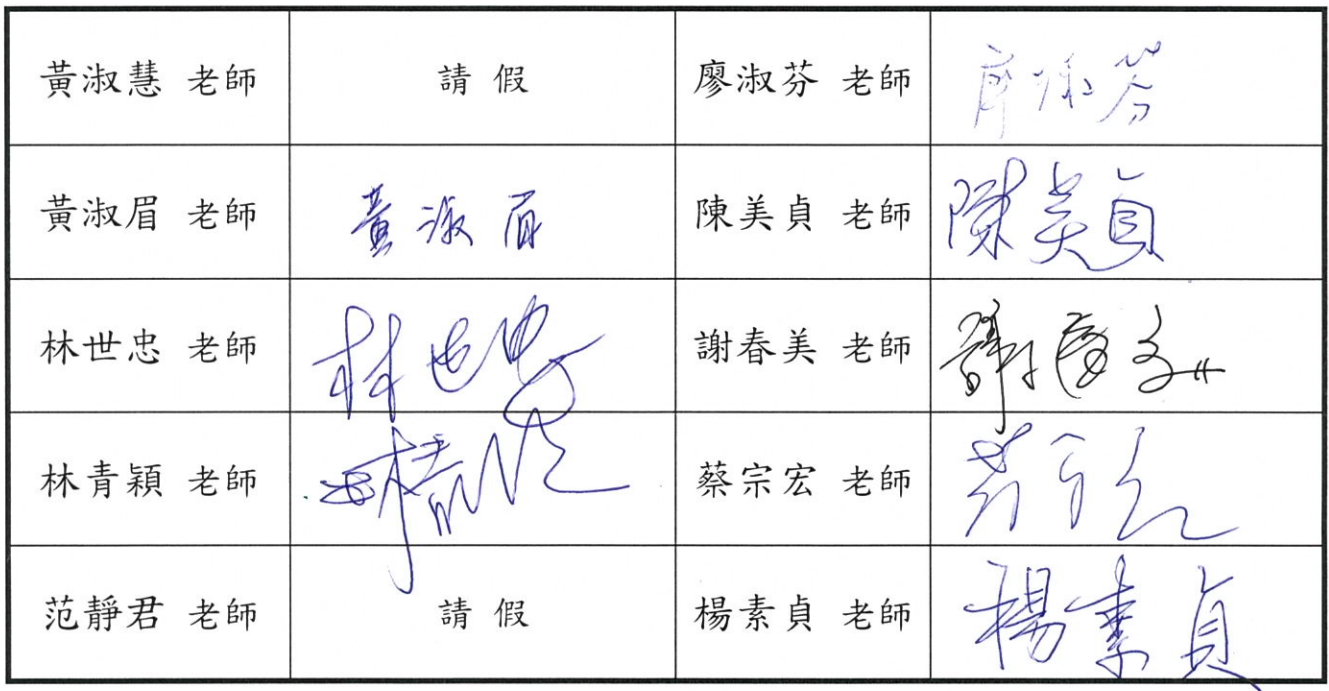 黃淑慧 老師 請 假 廖淑芬 老師 廖淑芬
黃淑眉 老師 黃淑眉 陳美貞 老師 陳美貞
林世忠 老師 林世忠 謝春美 老師
林青穎 老師 蔡宗宏 老師
范靜君 老師 請 假 楊素貞 老師 楊素貞